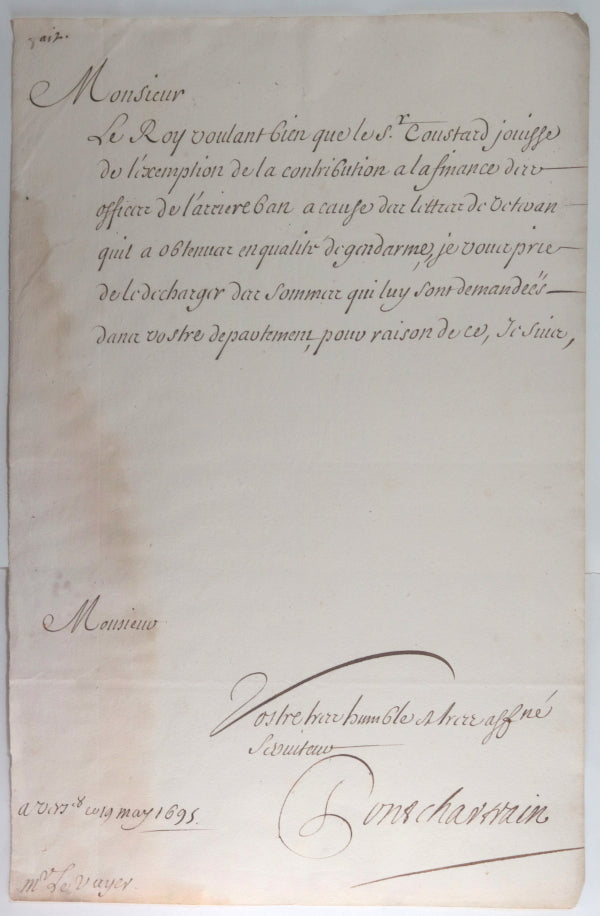 fait.
Monsieur
Le Roy voulant bien que le s.r Toustard jouisse
de l'exemption de la contribution a la finance des
officies de l'arriereban a cause des lettres de veteran
quil a obtenues en qualité de gendarme, je vous prie
de le decharger des sommes qui luy sont demandeés
dans vostre departement, pour raison de ce, Je suis,
Monsieur
Vostre tres humble et tres affné
Serviteur
a Vers.es ce 19 may 1695.
Pontchartrain
mr. Le vayer.